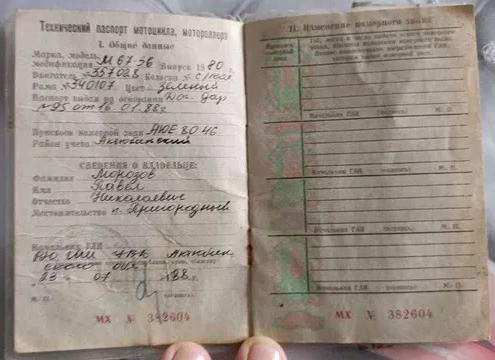 Технический паспорт мотоцикла, мотороллера
I. Общие данные
Марка, модель,
модификация М 67-36 Выпуск 1980 г.
Двигатель № 357028 Коляска №
Рама № 340107 Цвет зеленый
Паспорт выдан на основании Дог. дар
№95 от 16.01.88г.
Присвоен номерной знак АЮЕ 80 46
Район учета Актюбинский
СВЕДЕНИЯ О ВЛАДЕЛЬЦЕ:
Фамилия Морозов
Имя Павел
Отчество Николаевич
Местожительство п. Пригородный
Начальник ГАИ
РЭО ГАИ УВД Актюбин
ского обл
23 07 1988 г.
М. П. (подпись)
МХ № 382604
II. Изменение номерного знака
Начальник ГАИ (подпись) М. П.
Начальник ГАИ (подпись) М. П.
Начальник ГАИ (подпись) М. П.
Начальник ГАИ (подпись) М. П.
МХ № 382604